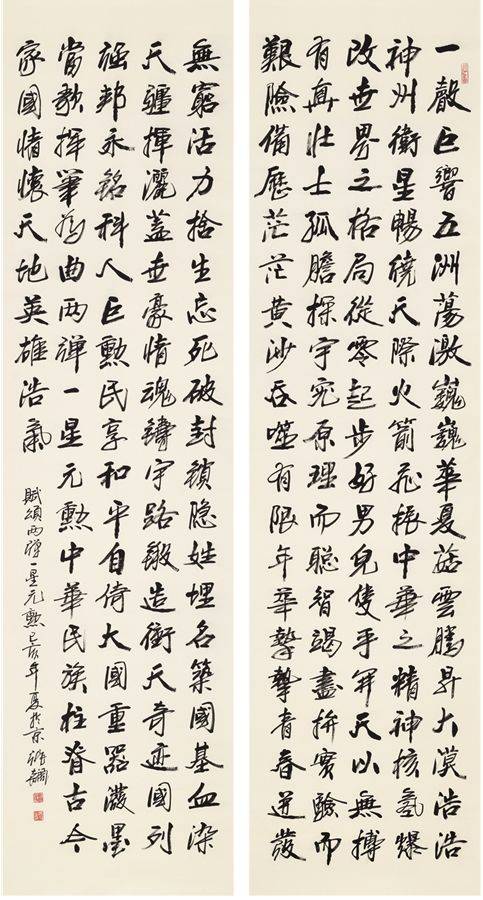 一聲巨響五洲蕩激巍巍華夏菇雲騰昇大漠浩浩
神州衛星暢繞天際火箭飛振中華之精神核氫爆
改世界之格局從零起步好男兒隻手開天以無搏
有真壯士孤膽探宇究原理而聰智竭盡拚實驗而
艱險備歷茫茫黃沙吞噬有限年華摯摯青春迸發
無窮活力捨生忘死破封鎖隱姓埋名築國基血染
天疆揮灑蓋世豪情魂鑄宇路鍛造衝天奇迹國列
強邦永銘科人巨勳民享和平自倚大國重器潑墨
當歌揮筆為曲两彈一星元勳中華民族柱脊古今
家國情懷天地英雄浩氣
賦頌两彈一星元勳己亥年夏於京